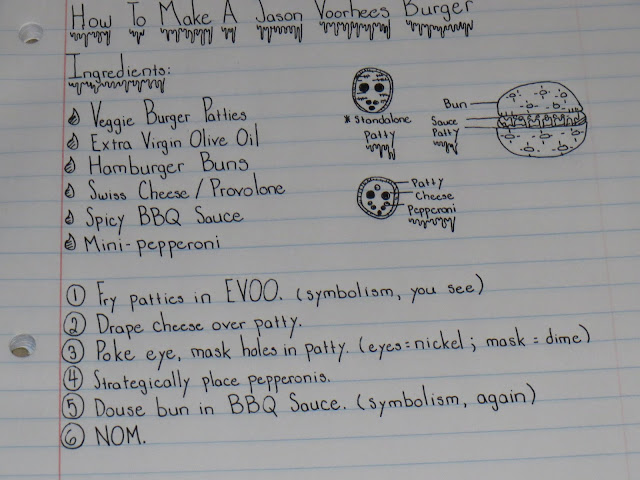 How To Make A Jason Voorhees Burger
Ingredients:
Veggie Burger Patties
Extra Virgin Olive Oil
Hamburger Buns
Swiss Cheese / Provolone
Spicy BBQ Sauce
Mini-pepperoni
* Standalone
Patty
Bun
Sauce
Patty
Patty
Cheese
Pepperoni
① Fry patties in EVOO. (symbolism, you see)
② Drape cheese over patty.
③ Poke eye, mask holes in patty. (eyes = nickel; mask = dime)
④ Strategically place pepperonis.
⑤ Douse bun in BBQ Sauce. (symbolism, again)
⑥ NOM.